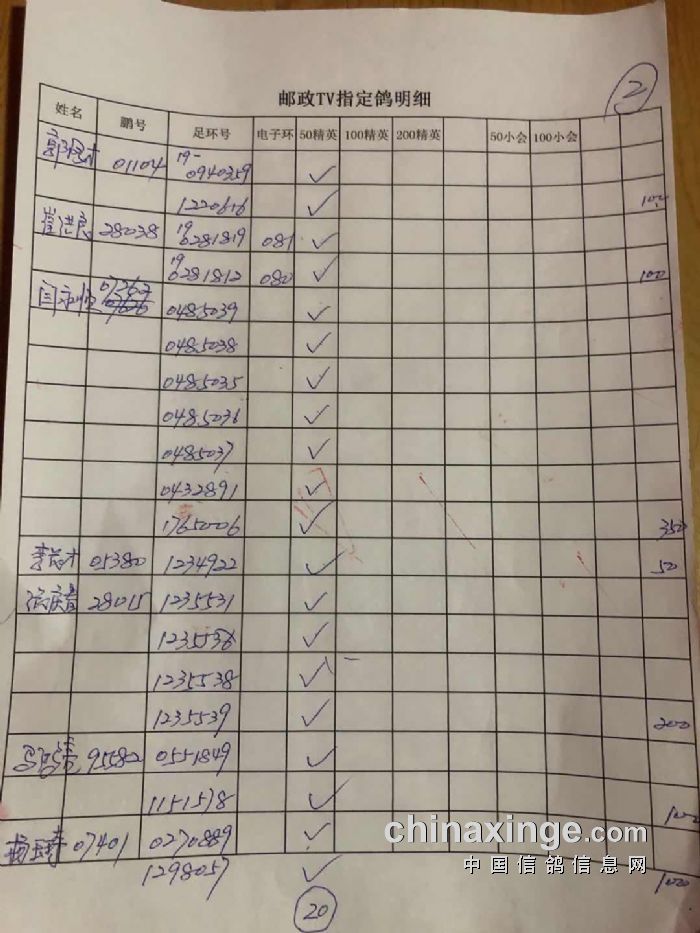 2
邮政TV指定鸽明细
姓名 鹏号 足环号 电子环 50精英 100精英 200精英 50小会 100小会
01104 19-0940359 ✓
1220616 ✓ 100
崔洪良 28038 19 0281819 081 ✓
19 0281812 080 ✓ 100
闫永恒 0485039 ✓
0485038 ✓
0485035 ✓
0485036 ✓
0485037 ✓
0432891 ✓
1765006 ✓ 350
05380 1234922 ✓ 50
28015 1235531 ✓
1235536 ✓
1235538 ✓
1235539 ✓ 200
95582 0551849 ✓
1151578 ✓ 100
07401 0270889 ✓
1298057 ✓ 100
20
chinaxinge.com
中国信鸽信息网